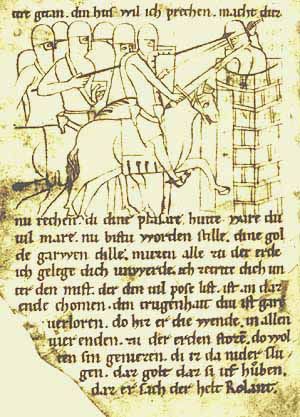 getan. din hus wil ich prechen. macht duz
nu rechen. di dine plasare. hutte ware du
uil mare. nu bistu worden stille. dine gol
de garwen dille. muzen alle zu der erde
ich gelege dich unwerde. ich dich un
ter den mist. der den uil pose list. ist. an daz
ende chomen. den trugenhait diu ist gare
uerloren. do hiz er die wende. in allen
uier enden. zu der erden storen. do wol
ten sin genieren. di er da nider slu
gen. daz golt daz si uf huben.
daz er sach der helt Rolant.